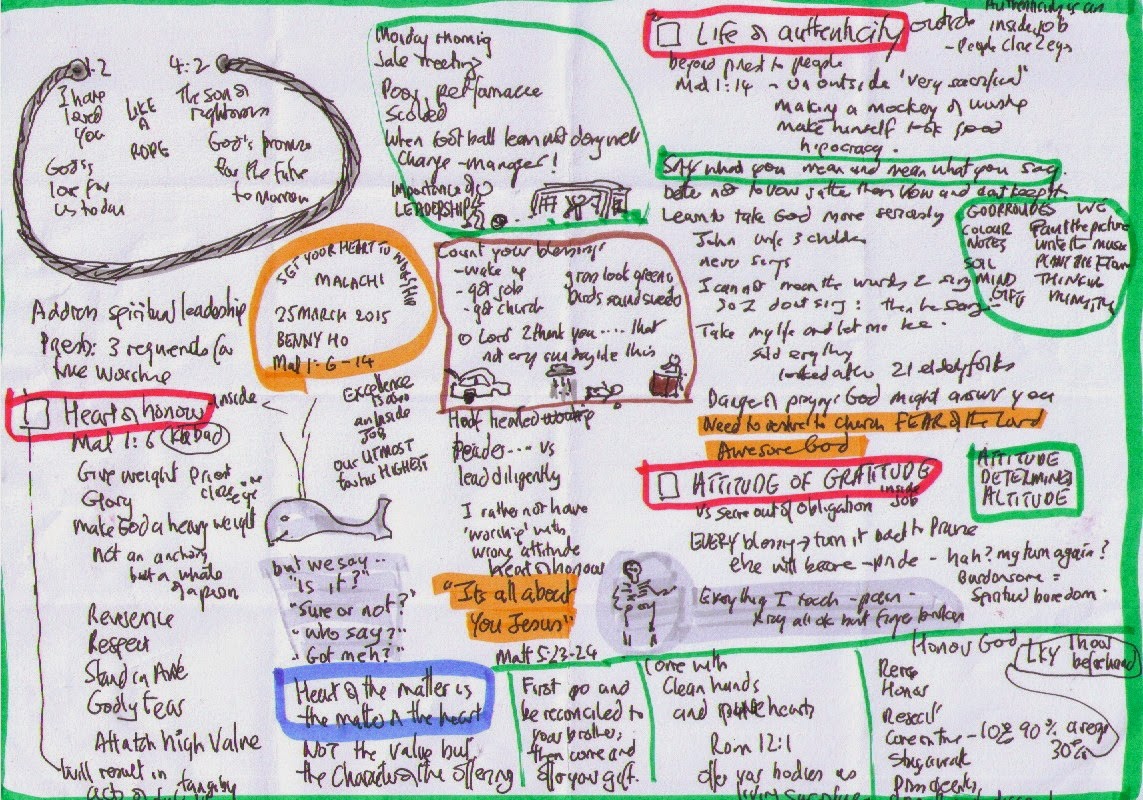 1:2
I have
loved
you
God's
love for
us today
LIKE
A
ROPE
4:2
The son of
righteousness
God's promise
for the future
tomorrow
Monday morning
Sale meeting
Poor performance
Scolded
When football team not doing well
Change manager!
Importance of
LEADERSHIP
Life of authenticity
outside
Authenticity is an
inside job
- People close 2 eyes
beyond priest to people
Mal 1:14 - on outside 'very sacrificial'
making a mockery of worship
make himself look good
hipocracy.
Say what you mean and mean what you say.
Learn to take God more seriously
John wife 3 children
never sings
I cannot mean the words I sing
so I dont sing: then he sang
Take my life and let me be.
sold everything
looked after 21 elderly folks
Danger of prayer: God might answer you
Need to restore to church FEAR of the Lord
Awesome God
GOD PROVIDES WE
COLOUR Paint the picture
NOTES write the music
SOIL
MIND THINKING
GIFT MINISTRY
SET YOUR HEART TO WORSHIP
MALACHI
25 MARCH 2015
BENNY HO
Mal 1:6-14
Count your blessings
- wake up
- got job
- got church
grass look green
birds sound sweet
O Lord I thank you .... that
not every sunday is like this
Address spiritual leadership
Priests: 3 requirements for
true Worship
Heart of honour
inside
Mal 1:6
Give weight
Glory
Priest close one eye
make God a heavy weight
not an anchor
but a whale
of a prison
Reverence
Respect
Stand in Awe
Godly Fear
Attatch High Value
will result in
tangible
acts of
Excellence
is also
an inside
JOB
our UTMOST
for his HIGHEST
but we say..
"is it?"
"sure or not?"
"who say?"
"Got meh?"
Heart of the matter is
the matter of the heart
NOT the value but
the Character of the offering
Half hearted worship
leader.... vs
lead diligently
I rather not have
'worship' with
wrong attitude
heart of honour
"Its all about
You Jesus"
Matt 5:23-24
First go and
be reconciled to
your brother,
then come and
offer your gift.
ATTITUDE OF GRATITUDE
inside
Job
vs serve out of obligation
ATTITUDE
DETERMINES
ALTITUDE
EVERY blessing → turn it back to Praise
else will become - pride - hah? my turn again?
Burdensome =
Spiritual boredom.
Everything I touch - pain
Xray all ok but finger broken
Come with
Clean hands
and pure hearts
Rom 12:1
offer your bodies as
living sacrifices
Honour God
Honor
10% 90%
30%
LKY